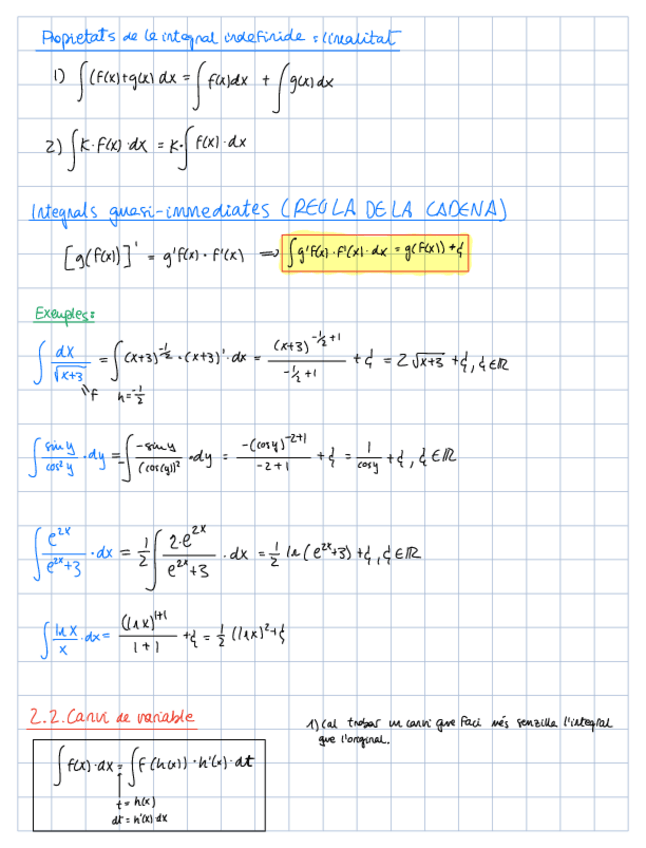 Propietats de la integral indefinida = linealitat
1) ∫(f(x)+g(x)) dx = ∫f(x)dx + ∫g(x)dx
2) ∫K·f(x)·dx = K·∫f(x)·dx
Integrals quasi-immediates (REGLA DE LA CADENA)
[g(f(x))]' = g'f(x)·f'(x) ⟹ ∫g'f(x)·f'(x)·dx = g(f(x)) + ξ
Exemples:
∫ dx/√(x+3) = ∫(x+3)^(-1/2)·(x+3)'·dx = (x+3)^(-1/2+1)/(-1/2+1) + ξ = 2√(x+3) + ξ, ξ∈ℝ
"f n=-1/2
∫ sin y/cos² y ·dy = -∫ -sin y/(cos(y))² ·dy = -(cos y)^(-2+1)/(-2+1) + ξ = 1/cos y + ξ, ξ∈ℝ
∫ e^(2x)/(e^(2x)+3) ·dx = 1/2 ∫ 2·e^(2x)/(e^(2x)+3) ·dx = 1/2 ln(e^(2x)+3) + ξ, ξ∈ℝ
∫ ln x/x ·dx = (ln x)^(1+1)/(1+1) + ξ = 1/2 (ln x)² + ξ
2.2. Canvi de variable
1) Cal trobar un canvi que faci més senzilla l'integral
que l'original.
∫f(x)·dx = ∫f(h(x))·h'(x)·dt
t = h(x)
dt = h'(x) dx